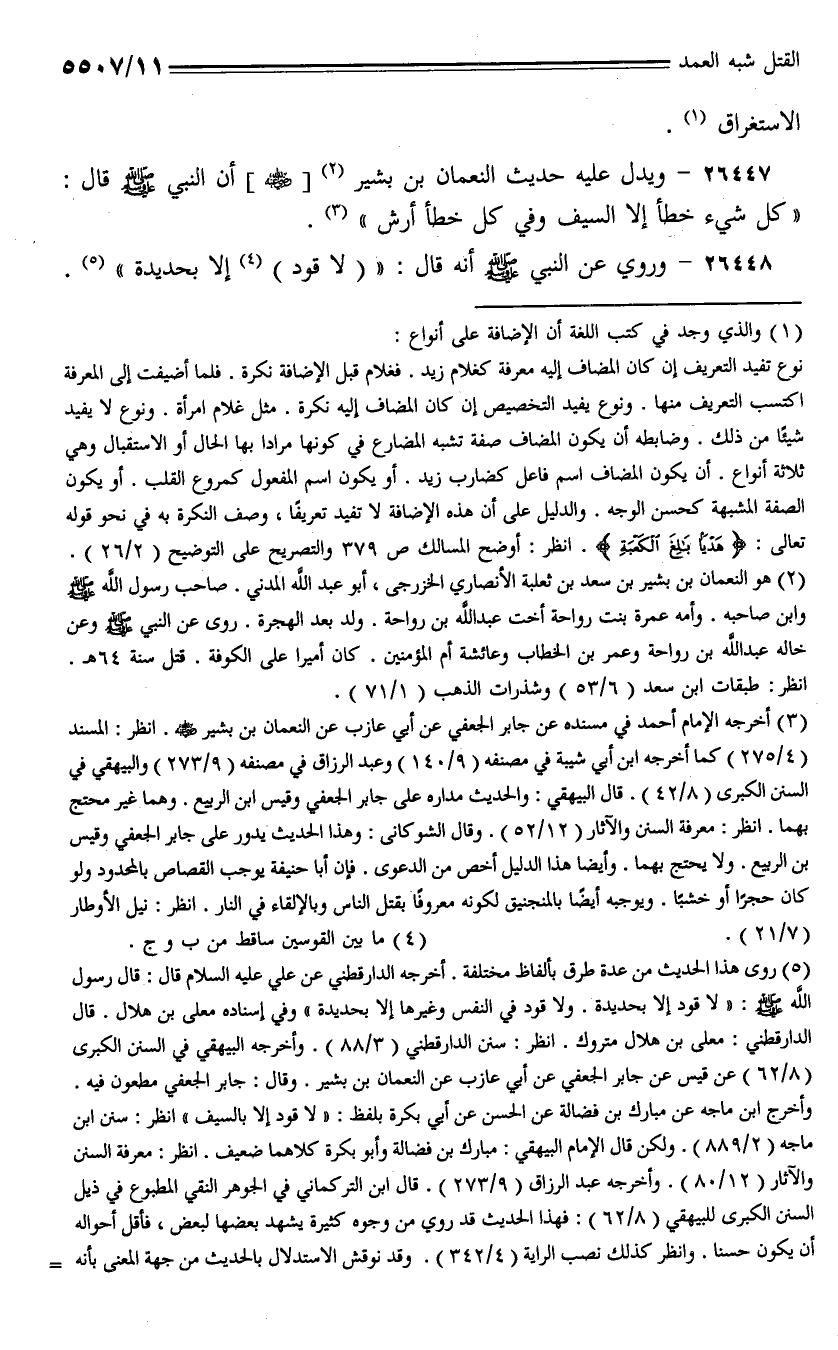 القتل شبه العمد ٥٥٠٧/١١
الاستغراق (١) .
٢٦٤٤٧ - ويدل عليه حديث النعمان بن بشير (٢) [ ﷺ ] أن النبي ﷺ قال :
« كل شيء خطأ إلا السيف وفي كل خطأ أرش » (٣) .
٢٦٤٤٨ - وروي عن النبي ﷺ أنه قال : « ( لا قود ) (٤) إلا بحديدة » (٥) .
(١) والذي وجد في كتب اللغة أن الإضافة على أنواع :
نوع تفيد التعريف إن كان المضاف إليه معرفة كغلام زيد . فغلام قبل الإضافة نكرة . فلما أضيفت إلى المعرفة
اكتسب التعريف منها . ونوع يفيد التخصيص إن كان المضاف إليه نكرة . مثل غلام امرأة . ونوع لا يفيد
شيئًا من ذلك . وضابطه أن يكون المضاف صفة تشبه المضارع في كونها مرادا بها الحال أو الاستقبال وهي
ثلاثة أنواع . أن يكون المضاف اسم فاعل كضارب زيد . أو يكون اسم المفعول كمروع القلب . أو يكون
الصفة المشبهة كحسن الوجه . والدليل على أن هذه الإضافة لا تفيد تعريفًا ، وصف النكرة به في نحو قوله
تعالى : ﴿ هَدْيًا بَالِغَ الْكَعْبَةِ ﴾ . انظر : أوضح المسالك ص ٣٧٩ والتصريح على التوضيح ( ٢٦/٢ ) .
(٢) هو النعمان بن بشير بن سعد بن ثعلبة الأنصاري الخزرجى ، أبو عبد اللَّه المدني . صاحب رسول اللَّه ﷺ
وابن صاحبه . وأمه عمرة بنت رواحة أخت عبداللَّه بن رواحة . ولد بعد الهجرة . روى عن النبي ﷺ وعن
خاله عبداللَّه بن رواحة وعمر بن الخطاب وعائشة أم المؤمنين . كان أميرا على الكوفة . قتل سنة ٦٤هـ .
انظر : طبقات ابن سعد ( ٥٣/٦ ) وشذرات الذهب ( ٧١/١ ) .
(٣) أخرجه الإمام أحمد في مسنده عن جابر الجعفي عن أبي عازب عن النعمان بن بشير ﷺ . انظر : المسند
( ٢٧٥/٤ ) كما أخرجه ابن أبي شيبة في مصنفه ( ١٤٠/٩ ) وعبد الرزاق في مصنفه ( ٢٧٣/٩ ) والبيهقي في
السنن الكبرى ( ٤٢/٨ ) . قال البيهقي : والحديث مداره على جابر الجعفي وقيس ابن الربيع . وهما غير محتج
بهما . انظر : معرفة السنن والآثار ( ٥٢/١٢ ) . وقال الشوكانى : وهذا الحديث يدور على جابر الجعفي وقيس
بن الربيع . ولا يحتج بهما . وأيضا هذا الدليل أخص من الدعوى . فإن أبا حنيفة يوجب القصاص بالمحدود ولو
كان حجرًا أو خشبًا . ويوجبه أيضًا بالمنجنيق لكونه معروفًا بقتل الناس وبالإلقاء في النار . انظر : نيل الأوطار
( ٢١/٧ ) . (٤) ما بين القوسين ساقط من ب و ج .
(٥) روى هذا الحديث من عدة طرق بألفاظ مختلفة . أخرجه الدارقطني عن علي عليه السلام قال : قال رسول
اللَّه ﷺ : « لا قود إلا بحديدة . ولا قود في النفس وغيرها إلا بحديدة » وفي إسناده معلى بن هلال . قال
الدارقطني : معلى بن هلال متروك . انظر : سنن الدارقطني ( ٨٨/٣ ) . وأخرجه البيهقي في السنن الكبرى
( ٦٢/٨ ) عن قيس عن جابر الجعفي عن أبي عازب عن النعمان بن بشير . وقال : جابر الجعفي مطعون فيه .
وأخرج ابن ماجه عن مبارك بن فضالة عن الحسن عن أبي بكرة بلفظ : « لا قود إلا بالسيف » انظر : سنن ابن
ماجه ( ٨٨٩/٢ ) . ولكن قال الإمام البيهقي : مبارك بن فضالة وأبو بكرة كلاهما ضعيف . انظر : معرفة السنن
والآثار ( ٨٠/١٢ ) . وأخرجه عبد الرزاق ( ٢٧٣/٩ ) . قال ابن التركماني في الجوهر النقي المطبوع في ذيل
السنن الكبرى للبيهقي ( ٦٢/٨ ) : فهذا الحديث قد روي من وجوه كثيرة يشهد بعضها لبعض ، فأقل أحواله
أن يكون حسنا . وانظر كذلك نصب الراية ( ٣٤٢/٤ ) . وقد نوقش الاستدلال بالحديث من جهة المعنى بأنه =